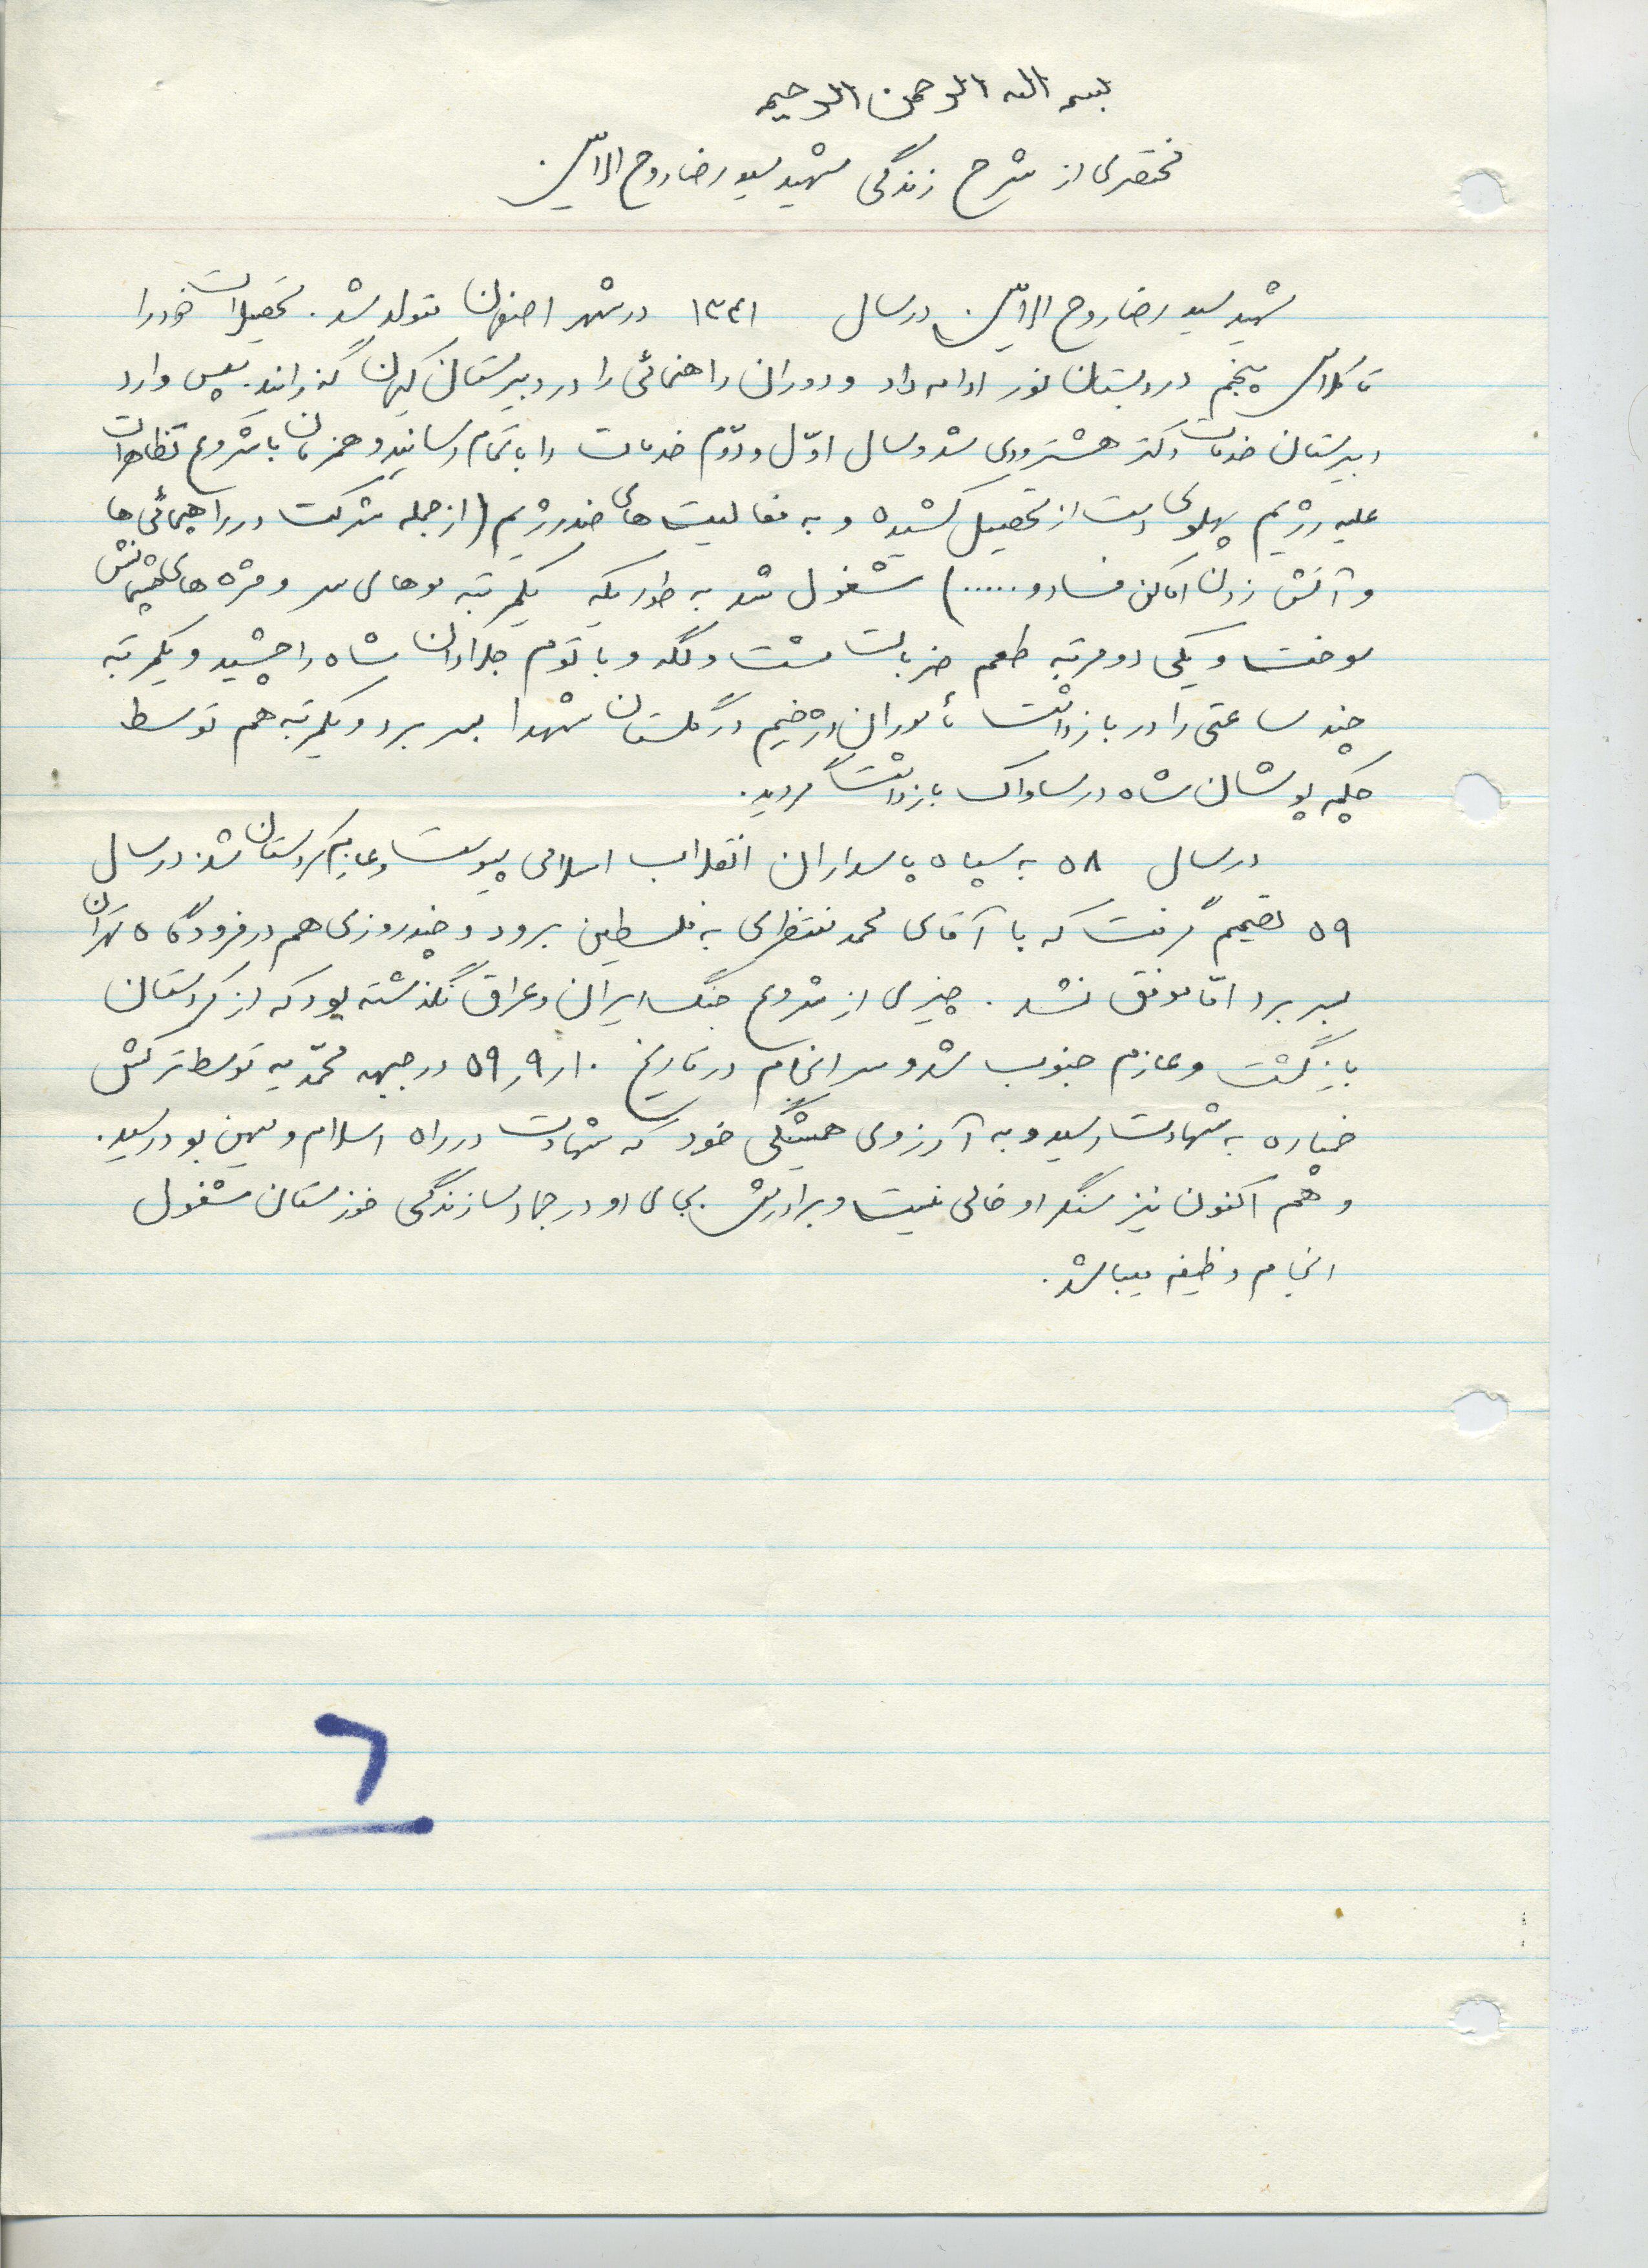 بسم الله الرحمن الرحیم
مختصری از شرح زندگی شهید سید رضا روح الامین
شهید سید رضا روح الامین درسال ۱۳۴۱ درشهر اصفهان متولد شد. تحصیلات خودرا
تا کلاس پنجم در دبستان نور ادامه داد و دوران راهنمائی را در دبیرستان کیهان گذراند. سپس وارد
دبیرستان خدمات دکتر هشترودی شد و سال اوّل و دوّم خدمات را باتمام رسانید و همزمان با شروع تظاهرات
علیه رژیم پهلوی دست از تحصیل کشیده و به فعالیت های ضد رژیم (از جمله شرکت در راهپیمائی ها
و آتش زدن اماکن فساد و .....) مشغول شد به طوریکه یکمرتبه موهای سر و مژه های چشمانش
سوخت و یکی دو مرتبه طعم ضربات مشت و لگد و باتوم جلادان شاه را چشید و یکمرتبه
چند ساعتی را در بازداشت مأموران دژخیم در گلستان شهدا بسر برد و یکمرتبه هم توسط
چکمه پوشان شاه در ساواک بازداشت گردید.
درسال ۵۸ به سپاه پاسداران انقلاب اسلامی پیوست و عازم کردستان شد. درسال
۵۹ تصمیم گرفت که با آقای محمد منتظری به فلسطین برود و چند روزی هم در فرودگاه تهران
بسر برد امّا موفق نشد. چیزی از شروع جنگ ایران و عراق نگذشته بود که از کردستان
بازگشت و عازم جنوب شد و سرانجام در تاریخ ۱۰ر۹ر۵۹ در جبهه محمّدیه توسط ترکش
خمپاره به شهادت رسید و به آرزوی همیشگی خود که شهادت در راه اسلام و میهن بود رسید.
و هم اکنون نیز سنگر او خالی نیست و برادرش بجای او در جهاد سازندگی خوزستان مشغول
انجام وظیفه میباشد.
۶